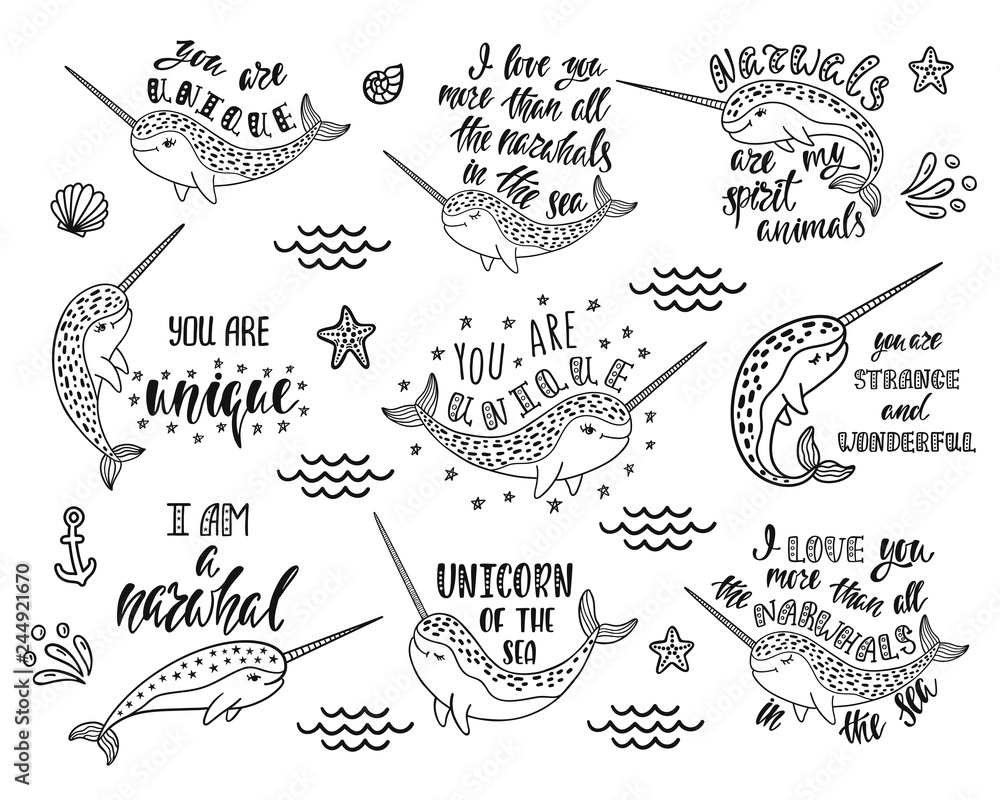 you are
UNIQUE
I love you
more than all
the narwhals
in the sea
NATWALS
are my
spirit
animals
YOU ARE
unique
YOU ARE
UNIQUE
you are
STRANGE
and
WONDERFUL
I AM
a
narwhal
UNICORN
OF THE
SEA
I LOVE you
more than all
the NARWHALS
in the sea
Adobe Stock | #244921670